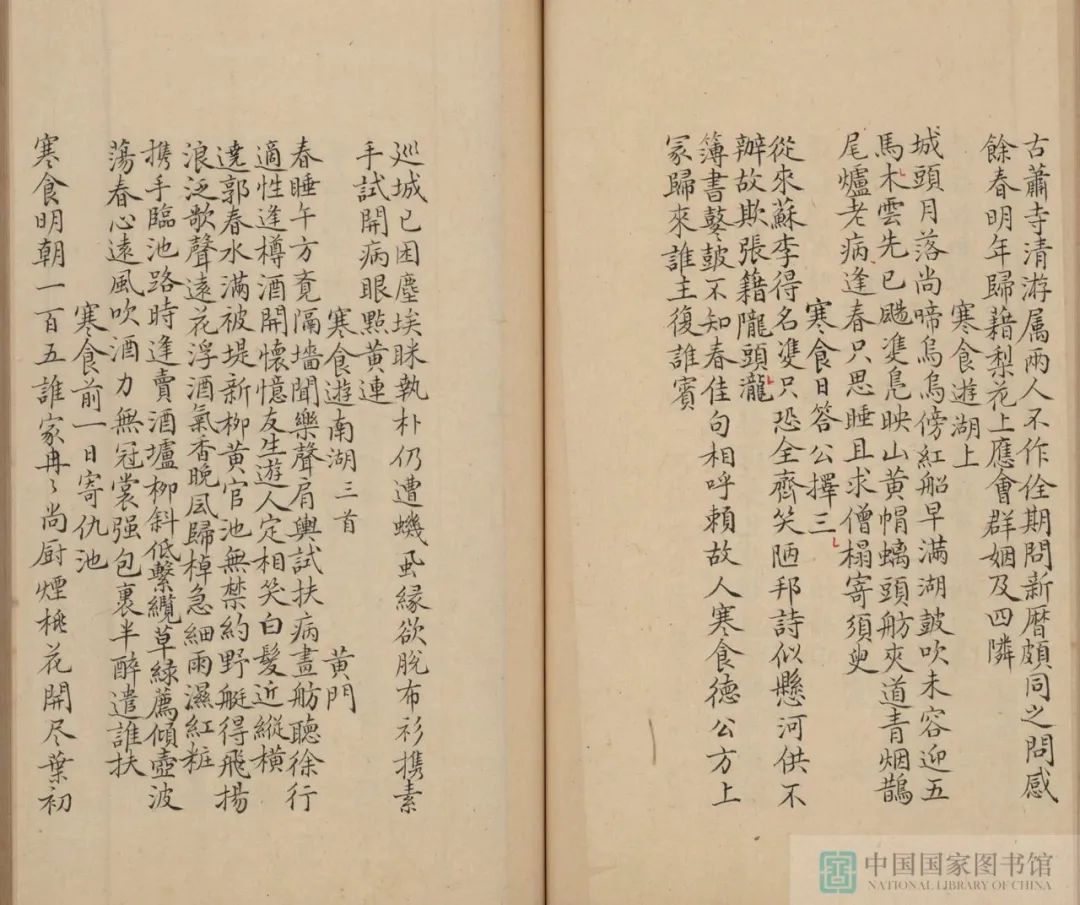 古蕭寺清游厲兩人不作佺期問新曆頗同之問感
餘春明年歸藉梨花上應會群姻及四隣
寒食遊湖上
城頭月落尚啼烏烏傍紅船早滿湖鼓吹未容迎五
馬木雲先已颺雙鳧映山黃帽螭頭舫夾道青烟鵲
尾爐老病逢春只思睡且求僧榻寄須臾
寒食日答公擇三
從來蘇李得名雙只恐全齊笑陋邦詩似懸河供不
辦故欺張籍隴頭瀧
簿書鼛鼓不知春佳句相呼賴故人寒食德公方上
冢歸來誰主復誰賓
巡城已困塵埃眯執朴仍遭蟣虱緣欲脫布衫携素
手試開病眼點黃連
寒食遊南湖三首 黃門
春睡午方覔隔墻聞樂聲肩輿試扶病畫舫聽徐行
適性逢樽酒開懷憶友生遊人定相笑白髮近縱橫
遶郭春水滿被堤新柳黃官池無禁約野艇得飛揚
浪泛歌聲遠花浮酒氣香晚風歸棹急細雨濕紅粧
携手臨池路時逢賣酒壚柳斜低繫纜草綠薦傾壺波
蕩春心遠風吹酒力無冠裳强包裹半醉遣誰扶
寒食前一日寄仇池
寒食明朝一百五誰家冉〻尚厨煙桃花開尽葉初
中国国家图书馆
NATIONAL LIBRARY OF CHINA